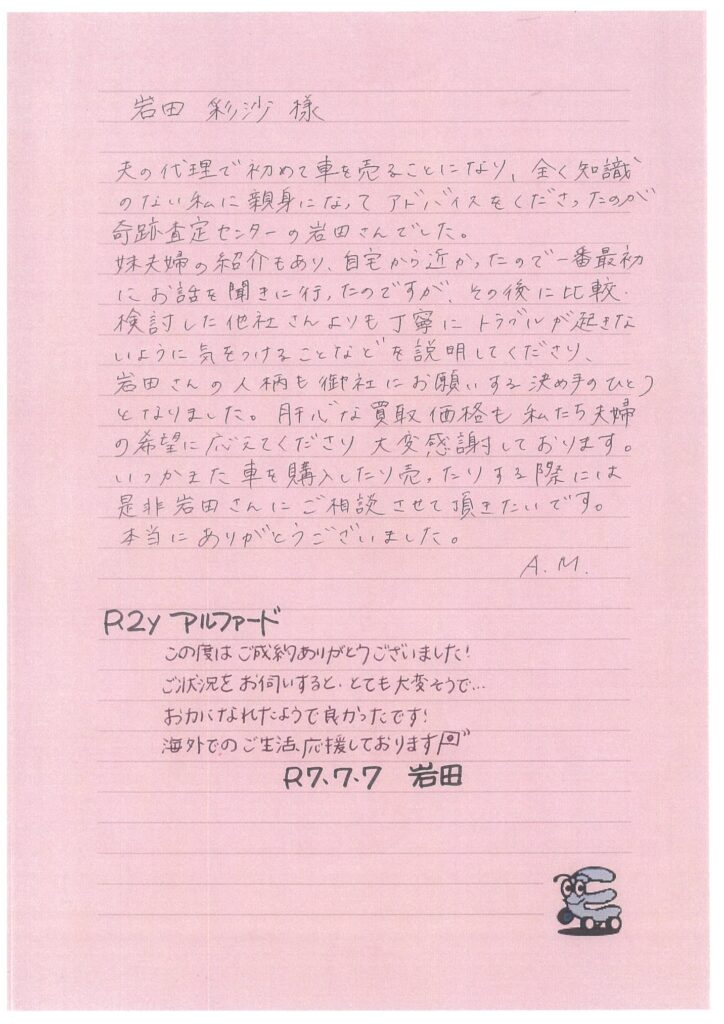 岩田 彩沙 様
夫の代理で初めて車を売ることになり、全く知識
のない私に親身になってアドバイスをくださったのが
奇跡査定センターの岩田さんでした。
妹夫婦の紹介もあり、自宅から近かったので一番最初
にお話を聞きに行ったのですが、その後に比較・
検討した他社さんよりも丁寧にトラブルが起きな
いように気をつけることなどを説明してくださり、
岩田さんの人柄も御社にお願いする決め手のひとつ
となりました。肝心な買取価格も私たち夫婦
の希望に応えてくださり大変感謝しております。
いつかまた車を購入したり売ったりする際には
是非岩田さんにご相談させて頂きたいです。
本当にありがとうございました。
A.M.
R2y アルファード
この度はご成約ありがとうございました!
ご状況をお伺いすると、とても大変そうで…
お力になれたようで良かったです!
海外でのご生活、応援しております
R7.7.7 岩田